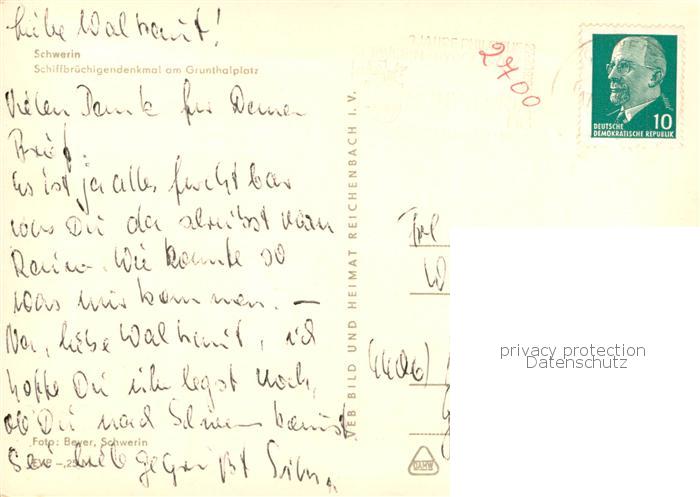 Liebe Waltraut!
Schwerin
Schiffbrüchigendenkmal am Grunthalplatz
Vielen Dank für Deinen
Brief.
Es ist ja alles furchtbar
was Du da schreibst vom
Rainer. Wie konnte so
was nur kommen. –
Na, liebe Waltraut, ich
hoffe Du überlegst noch,
ob Du nach Schwerin kommst
Foto: Beyer, Schwerin
Sei lieb gegrüßt
EVP –,25
VEB BILD UND HEIMAT REICHENBACH I. V.
2700
10
DEUTSCHE
DEMOKRATISCHE REPUBLIK
Frl
W
DAMW
privacy protection
Datenschutz